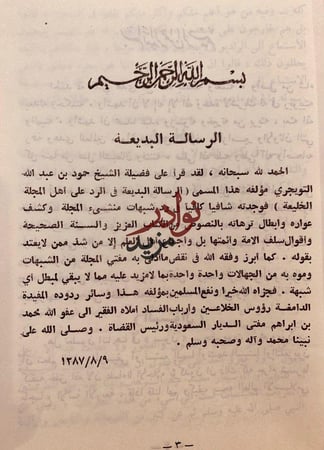 بسم الله الرحمن الرحيم
الرسالة البديعة
الحمد لله سبحانه ، لقد قرأ على فضيلة الشيخ حمود بن عبد الله
التويجري مؤلفه هذا المسمى (الرسالة البديعة في الرد على اهل المجلة
الخليعة) فوجدته شافيا كافيا شبهات منشىء المجلة وكشف
عواره وابطال ترهاته بالنصوص العزيز والسنة الصحيحة
واقوال سلف الامة وائمتها بل واجماع العلم إلا من شذ ممن لا يعتد
بقوله . كما ابرز وفقه الله في نقض ما ادلى به مفتي المجلة من الشبهات
وموه به من الجهالات واحدة واحدة بما لا مزيد عليه مما لا يبقي لمبطل اي
شبهة . فجزاه الله خيرا ونفع المسلمين بمؤلفه هذا وسائر ردوده المفيدة
الدامغة رؤوس الخلاعيين وارباب الفساد املاه الفقير الى عفو الله محمد
بن ابراهيم مفتي الديار السعودية ورئيس القضاة . وصلى الله على
نبينا محمد وآله وصحبه وسلم .
١٣٨٧/٨/٩
نوادر
مزيد
— ٣ —